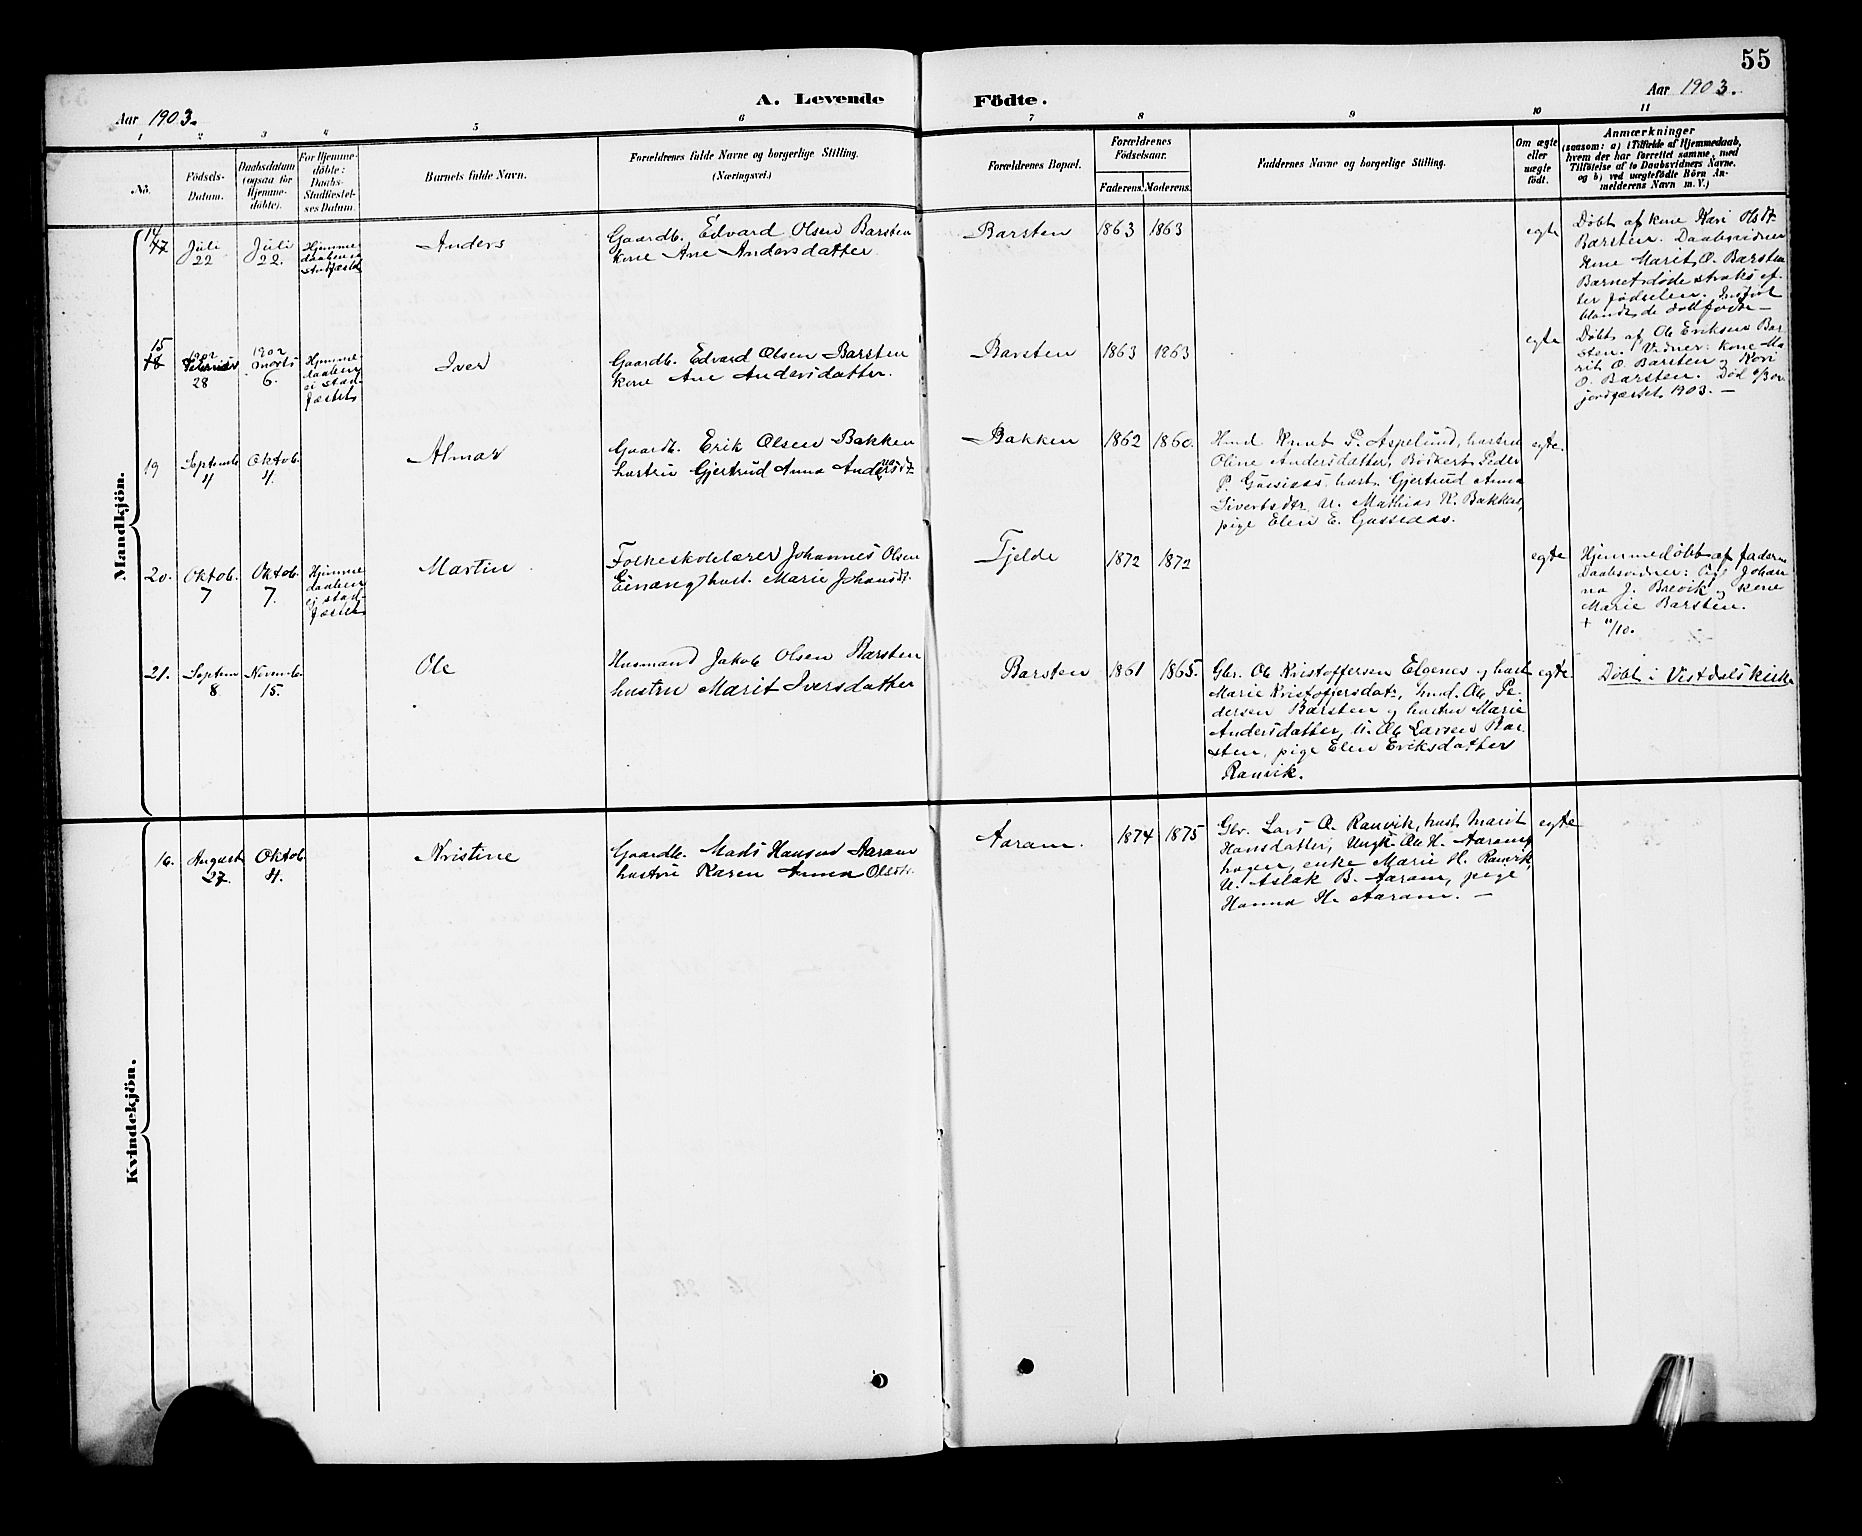 55
Aar 1903.
A. Levende Födte.
Aar 1903.
1 2 3 4 5 6 7 8 9 10 11
No.
Födsels-
Datum.
Daabsdatum
(ogsaa for
Hjemme-
döbte).
For Hjemme-
döbte:
Daabs-
Stadfæstel-
ses Datum.
Barnets fulde Navn.
Forældrenes fulde Navne og borgerlige Stilling.
(Næringsvei.)
Forældrenes Bopæl.
Forældrenes
Födselsaar.
Faderens. Moderens.
Faddernes Navne og borgerlige Stilling.
Om ægte
eller
uægte
födt.
Anmærkninger
(saasom: a) i Tilfælde af Hjemmedaab,
hvem der har forrettet samme, med
Tilföielse af to Daabsvidners Navne,
og b) ved uægtefödte Börn An-
melderens Navn m. V.)
Mandkjön.
14
17
Juli
22
Juli
22.
Hjemme
daaben ei
Anders
Gaardb. Edvard Olsen Barsten
kone Ane Andersdatter.
Barsten
1863 1863
egte
Døbt af kone Kari Olsdt.
Barsten. Daabsvidner
Kone Marit O. Barsten
Barnet døde straks ef-
ter fødselen. Indført
blandt de dødfødte —
15
18
1902
Februar
28
1902
Marts
6.
Hjemme
daaben
ei stad-
fæstet
Iver
Gaardb. Edvard Olsen Barsten
kone Ane Andersdatter.
Barsten
1863 1863
egte
Døbt af Ole Eriksen Bar
sten. Vidner: kone Ma
rit O. Barsten og Kari
O. Barsten. Død
jordfæstet 1903. —
19
Septemb
4
Oktob.
4.
Almar
Gaardb. Erik Olsen Bakken
hustru Gjertrud Anna Andersdt.
Bakken
1862 1860.
Hmd Knut P. Aspelund, hustru
Oline Andersdatter, Peder
P. Gussiaas, hust. Gjertrud Anna
Sivertsdtr, U. Mathias K. Bakken,
pige Elen E. Gussiaas.
egte.
20.
Oktob.
7
Oktob.
7.
Hjemme
daaben
ei stad-
fæstet
Martin
Folkeskolelærer Johannes Olsen
Einang, hust. Marie Johansdt.
Tjelde
1872 1872
egte
Hjemmedøbt af faderen
Daabsvidner: Pige Johan
na J. Brevik og kone
Marie Barsten.
+ 11/10.
21.
Septem
8
Novemb.
15.
Ole
Husmand Jakob Olsen Barsten
hustru Marit Iversdatter
Barsten
1861 1865.
Gbr. Ole Kristoffersen Elgenes og hust
Marie Kristoffersdat., hmd. Ole Pe-
dersen Barsten og hustru Marie
Andersdatter, U. Ole Larsen Bar
sten, pige Elen Eriksdatter
Ranvik.
egte.
Døbt i Vistdals kirke
Kvindekjön.
16.
August
27.
Oktob.
4.
Kristine
Gaardb. Mads Hansen Aaram
hustru Karen Anna Olsdt.
Aaram.
1874 1875
Gbr. Lars O. Ranvik, hust. Marit
Hansdatter, Ungk. Ole H. Aarams
hagen, enke Marie H. Ranvik,
U. Aslak B. Aaram, pige
Hanna H. Aaram. —
egte